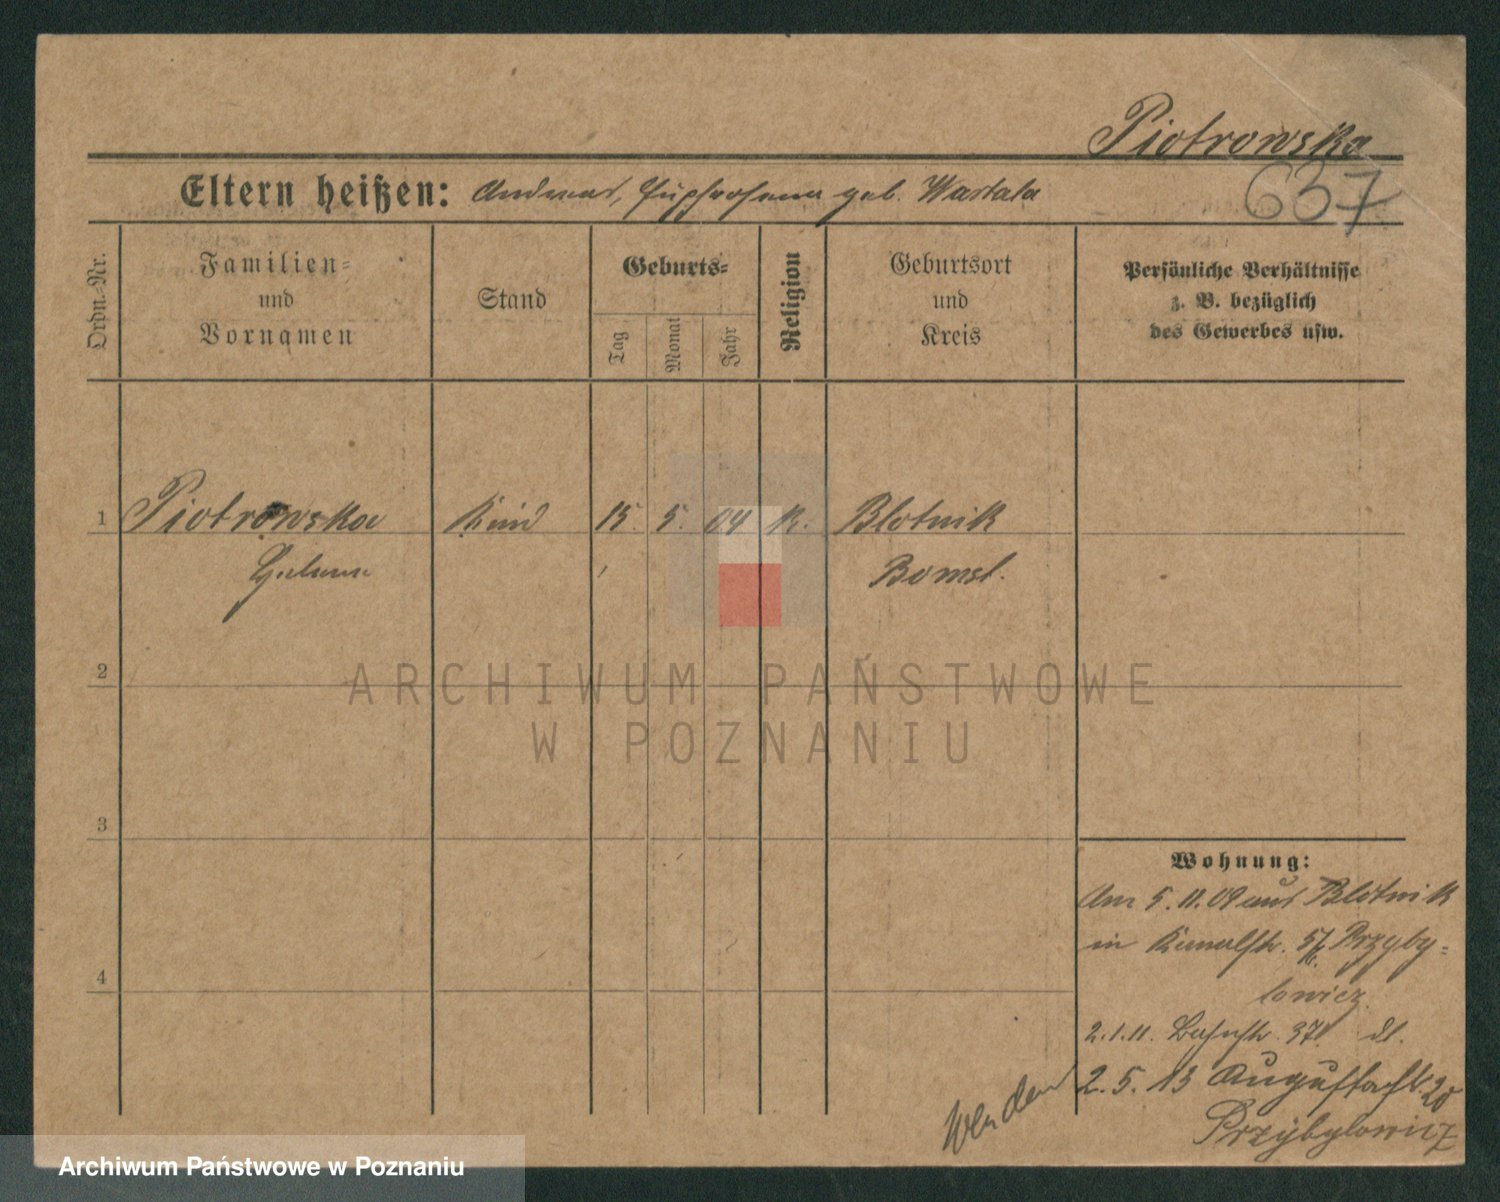 Piotrowska
637
Eltern heißen: Andreas, Euphrosina geb. Wartala
Ordn.-Nr.
Familien-
und
Vornamen
Stand
Geburts-
Tag
Monat
Jahr
Religion
Geburtsort
und
Kreis
Persönliche Verhältnisse
z. B. bezüglich
des Gewerbes usw.
1 Piotrowska Kind 15. 5. 04 K. Blotnik
Helene Bomst.
2
3
4
ARCHIWUM PAŃSTWOWE
W POZNANIU
Wohnung:
Am 5.11.09 aus Blotnik
in Kanalstr. Przyby-
lowicz.
2.1.11. Bahnstr. 37 dl.
2.5.13 Augustastr. 20
Przybylowicz
Wenden
Archiwum Państwowe w Poznaniu